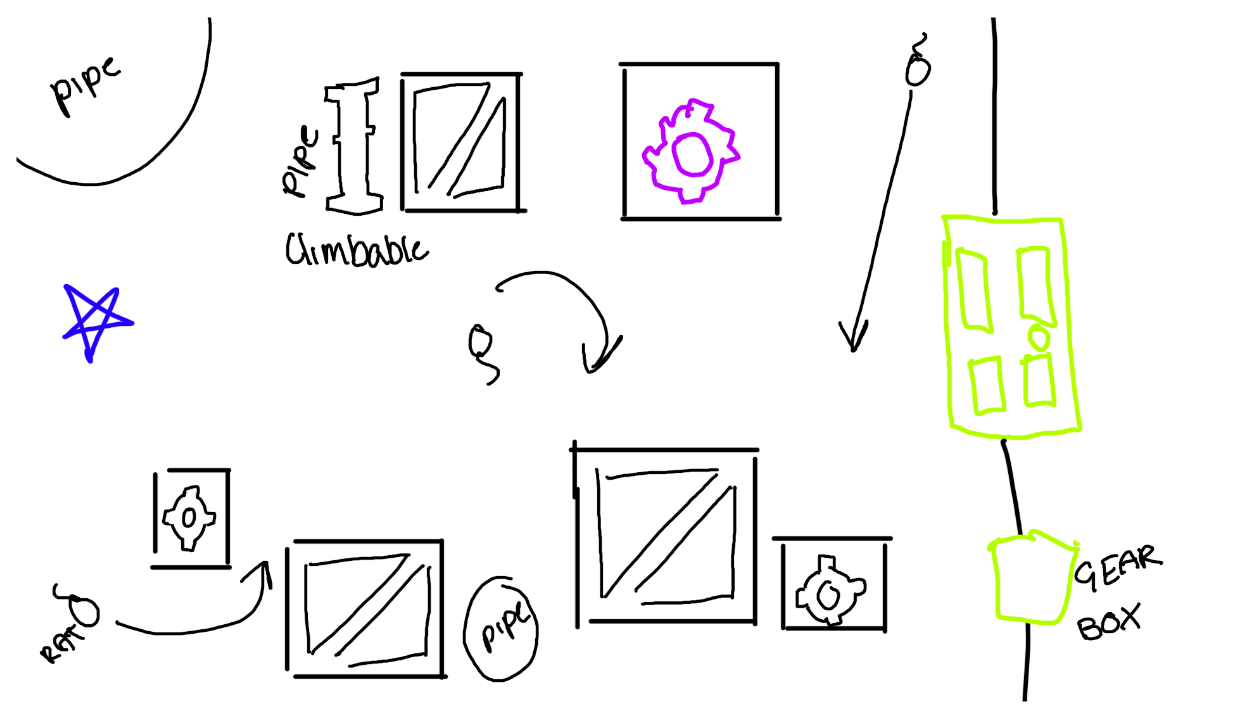 pipe
PIPE
Climbable
RAT
PIPE
GEAR
BOX